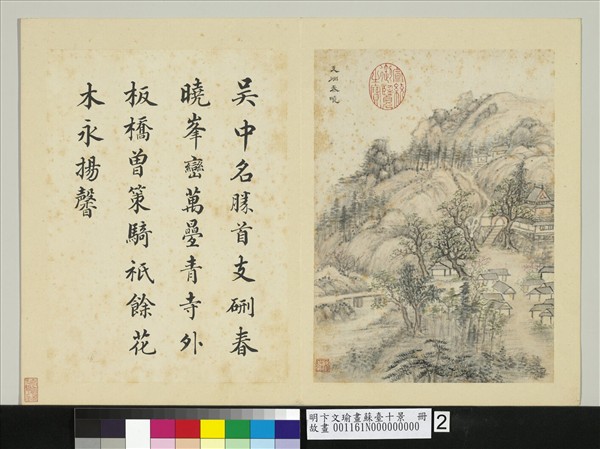 支硎春曉
吳中名勝首支硎春
曉峯巒萬疊青寺外
板橋曾策騎祇餘花
木永揚馨
明卞文瑜畫蘇臺十景 冊
故畫 001161N000000000
2